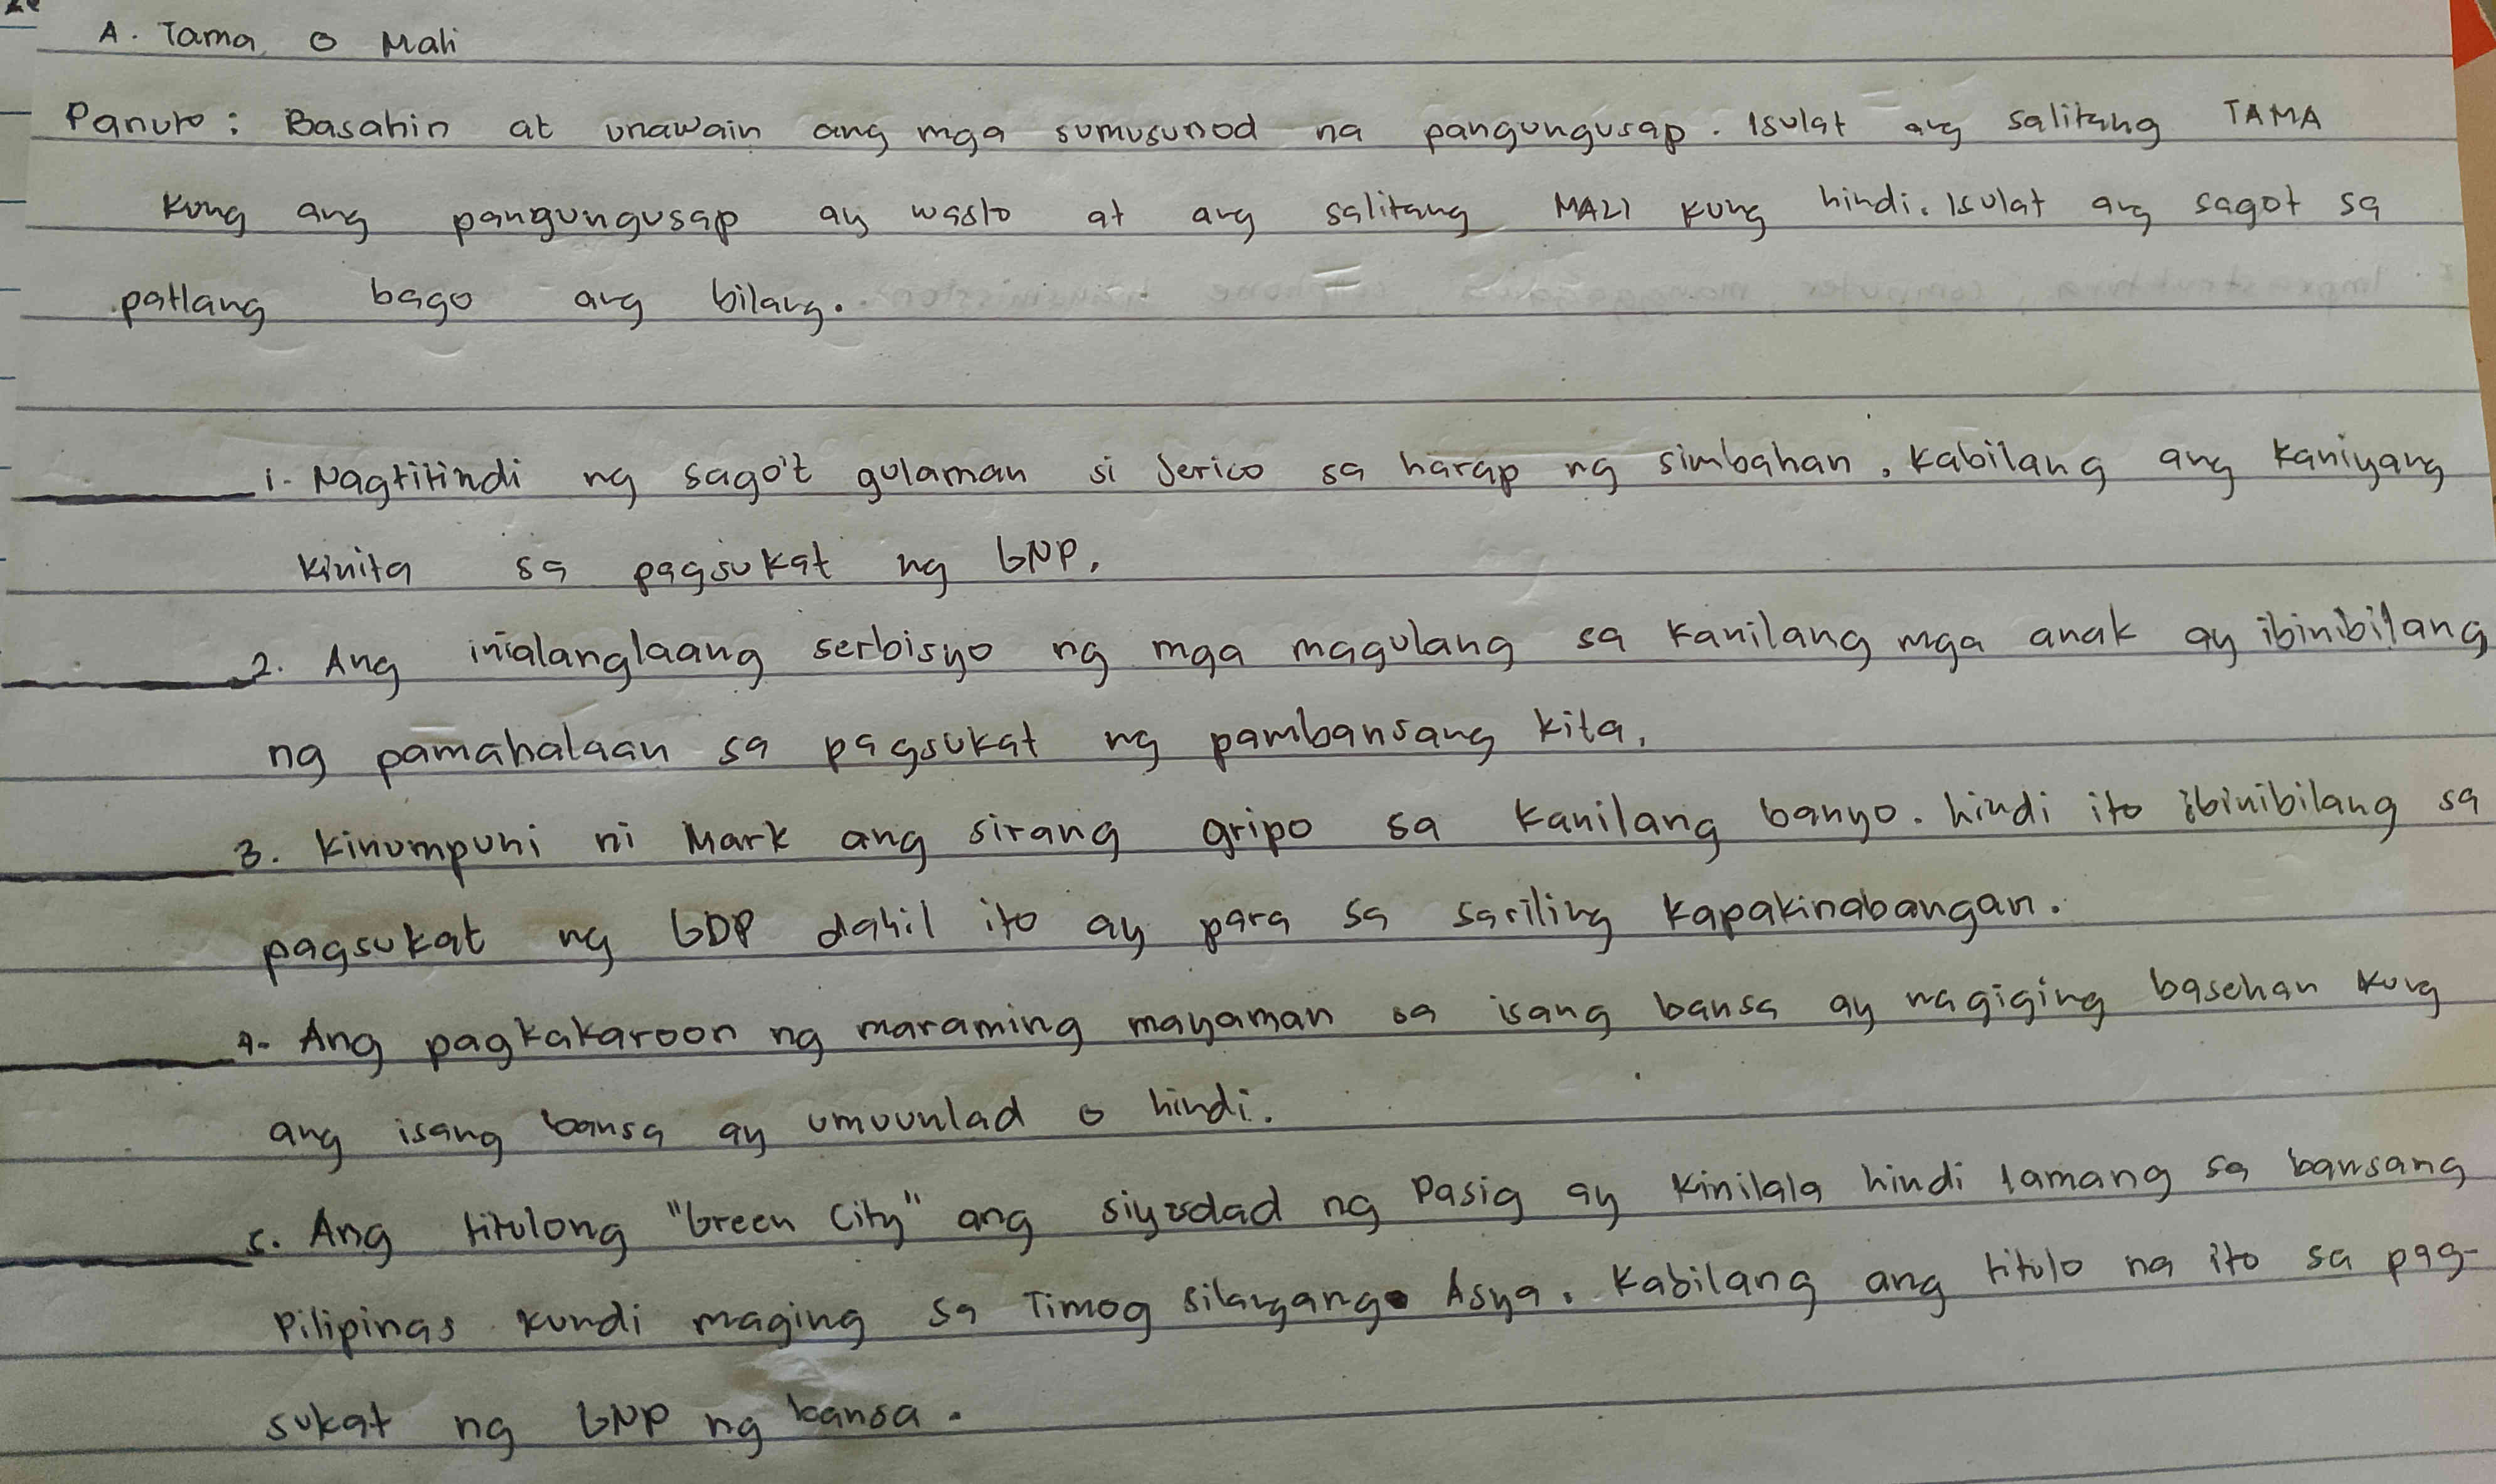 A. Tama o Mali
Panuto: Basahin at unawain ang mga sumusunod na pangungusap. Isulat ang salitang TAMA
kung ang pangungusap ay wasto at ang salitang MALI kung hindi. Isulat ang sagot sa
patlang bago ang bilang.
1. Nagtitindi ng sago't gulaman si Jerico sa harap ng simbahan. Kabilang ang kaniyang
kinita sa pagsukat ng GNP.
2. Ang inialanglaang serbisyo ng mga magulang sa kanilang mga anak ay ibinibilang
ng pamahalaan sa pagsukat ng pambansang kita.
3. Kinumpuni ni Mark ang sirang gripo sa kanilang banyo. hindi ito ibinibilang sa
pagsukat ng GDP dahil ito ay para sa sariling kapakinabangan.
4. Ang pagkakaroon ng maraming mayaman sa isang bansa ay nagiging basehan kung
ang isang bansa ay umuunlad o hindi.
5. Ang titulong "Green City" ang siyudad ng Pasig ay kinilala hindi lamang sa bansang
Pilipinas kundi maging sa Timog silangang Asya. Kabilang ang titulo na ito sa pag-
sukat ng GNP ng bansa.